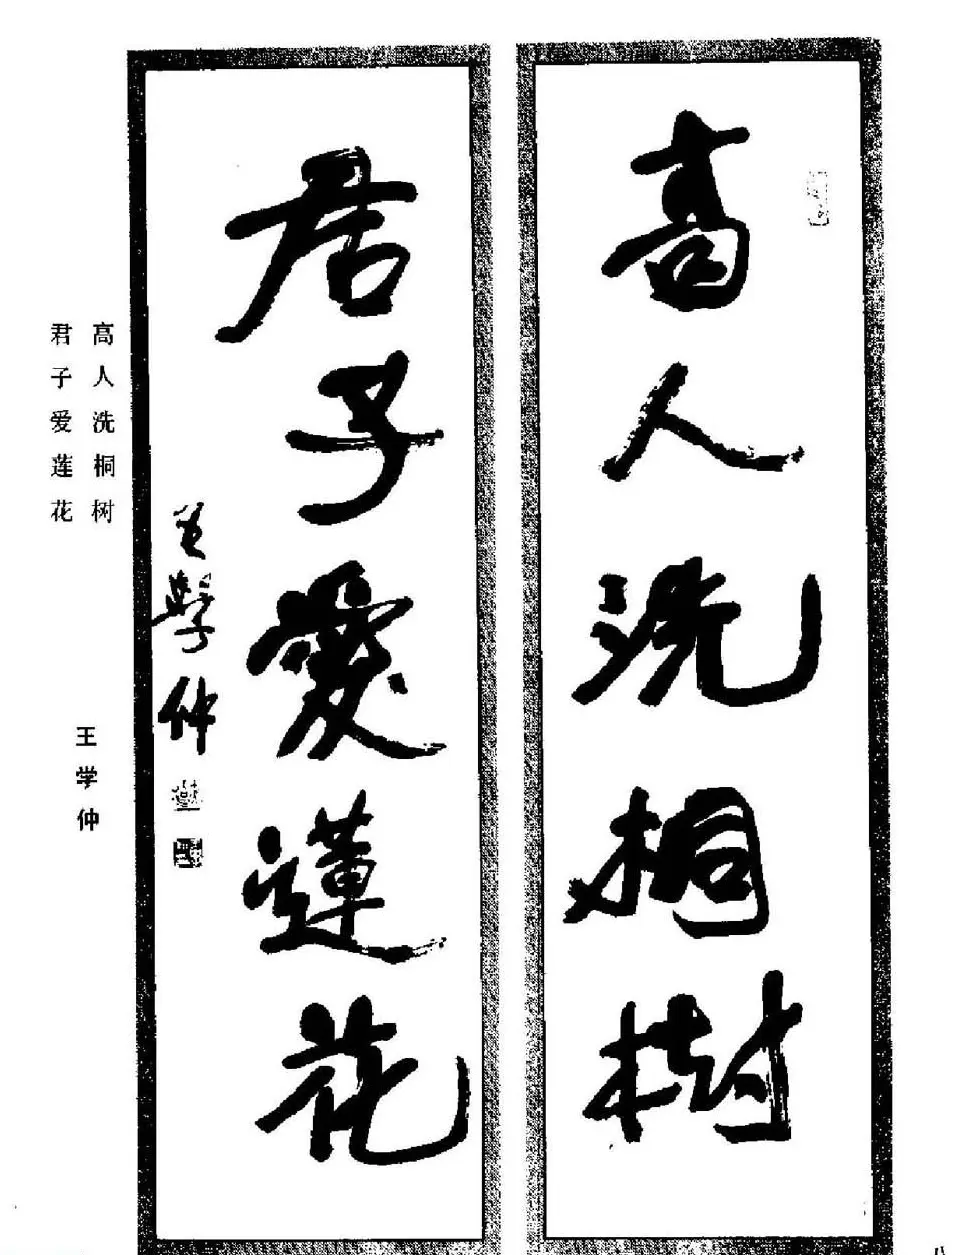 高人洗桐樹
君子愛蓮花
王學仲
高人洗桐树
君子爱莲花
王学仲
八